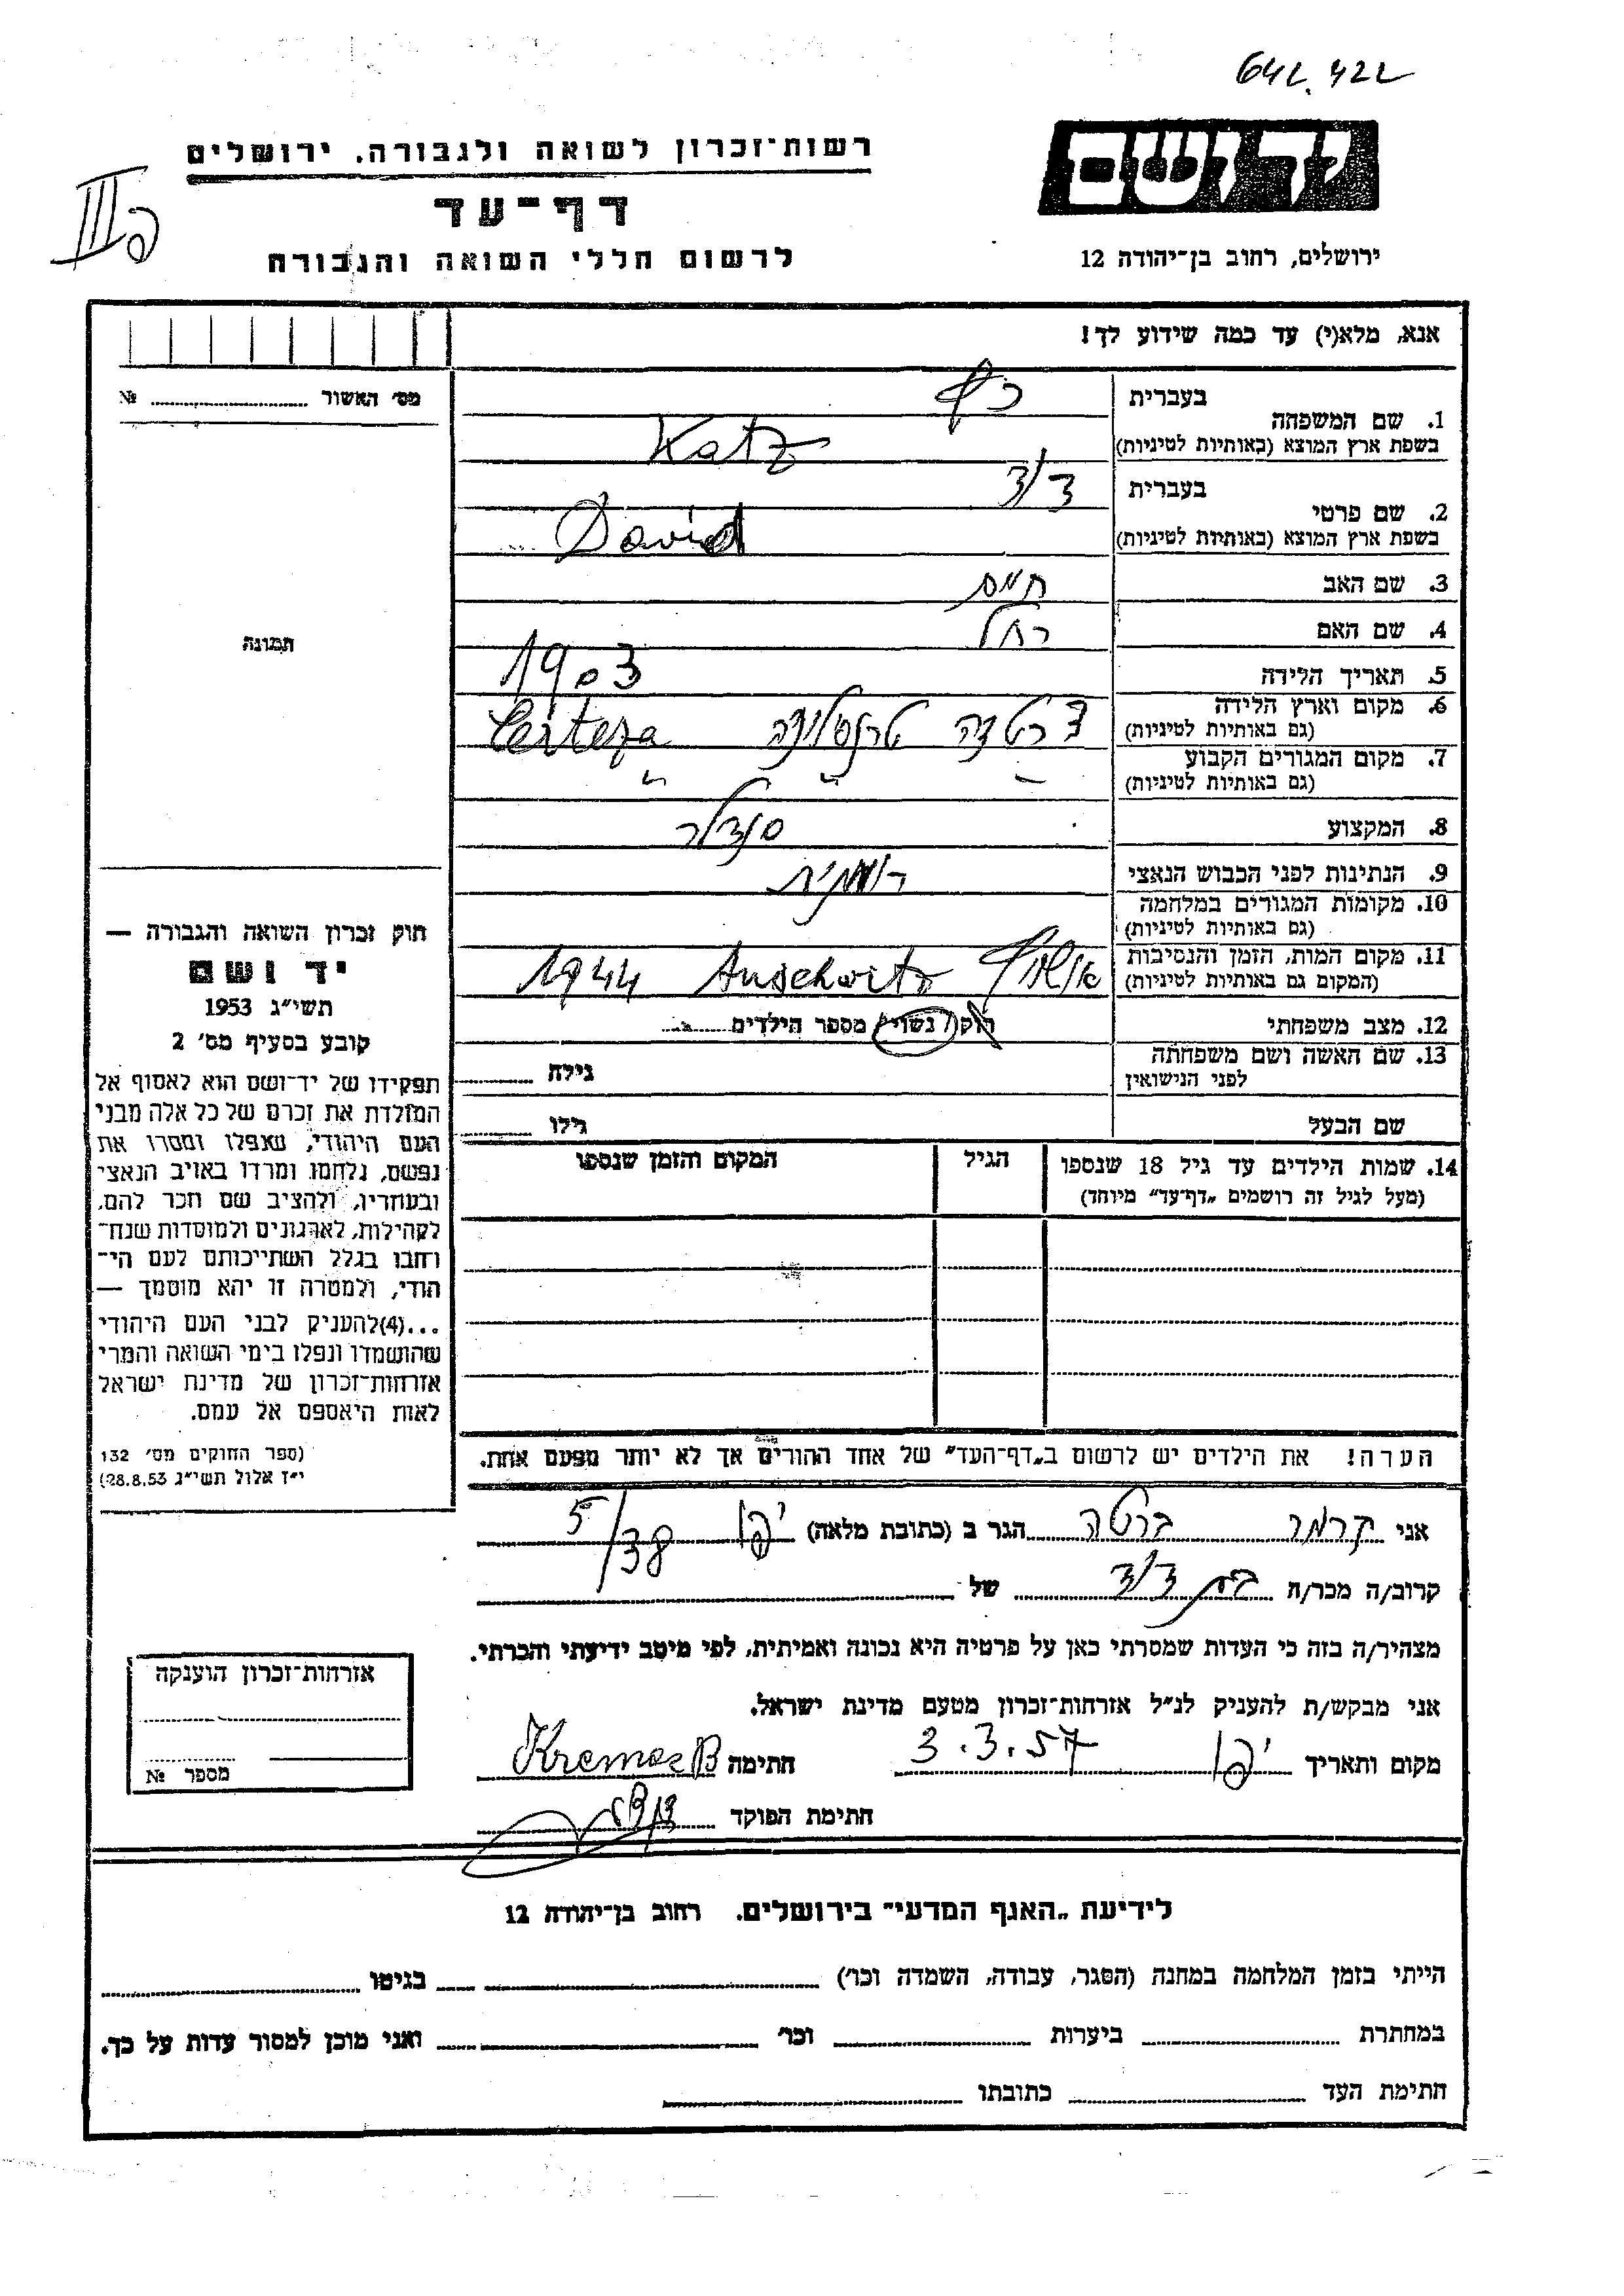 64L.42L
יד ושם
רשות־זכרון לשואה ולגבורה, ירושלים
דף־עד
לרשום חללי השואה והגבורה
ירושלים, רחוב בן־יהודה 12
III
אנא, מלא(י) עד כמה שידוע לך!
מס׳ האשור № 
תמונה
1. שם המשפחה
בעברית כץ
בשפת ארץ המוצא (באותיות לטיניות) Katz
2. שם פרטי
בעברית דוד
בשפת ארץ המוצא (באותיות לטיניות) David
3. שם האב חיים
4. שם האם רחל
5. תאריך הלידה 1903
6. מקום וארץ הלידה
(גם באותיות לטיניות) טרנסילוניה Certeza
7. מקום המגורים הקבוע
(גם באותיות לטיניות) — " "
8. המקצוע סנדלר
9. הנתינות לפני הכבוש הנאצי רומנית
10. מקומות המגורים במלחמה
(גם באותיות לטיניות)
11. מקום המות, הזמן והנסיבות
(המקום גם באותיות לטיניות) אושויץ Auschwitz 1944
12. מצב משפחתי רוק/נשוי/ מספר הילדים
13. שם האשה ושם משפחתה
לפני הנישואין גילה
שם הבעל גילו
14. שמות הילדים עד גיל 18 שנספו הגיל המקום והזמן שנספו
(מעל לגיל זה רושמים „דף־עד” מיוחד)
הערה! את הילדים יש לרשום ב„דף־העד” של אחד ההורים אך לא יותר מפעם אחת.
חוק זכרון השואה והגבורה —
יד ושם
תשי״ג 1953
קובע בסעיף מס׳ 2
תפקידו של יד־ושם הוא לאסוף אל
המולדת את זכרם של כל אלה מבני
העם היהודי, שנפלו ומסרו את
נפשם, נלחמו ומרדו באויב הנאצי
ובעוזריו, ולהציב שם וזכר להם,
לקהילות, לארגונים ולמוסדות שנח־
רבו בגלל השתייכותם לעם הי־
הודי, ולמטרה זו יהא מוסמך —
...(4)להעניק לבני העם היהודי
שהושמדו ונפלו בימי השואה והמרי
אזרחות־זכרון של מדינת ישראל
לאות היאספם אל עמם.
(ספר החוקים מס׳ 132
י״ז אלול תשי״ג 28.8.53)
אני קרמר ברטה הגר ב (כתובת מלאה) יפו 5/38
קרוב/ה מכר/ה בת דוד של
מצהיר/ה בזה כי העדות שמסרתי כאן על פרטיה היא נכונה ואמיתית, לפי מיטב ידיעתי והכרתי.
אני מבקש/ת להעניק לנ״ל אזרחות־זכרון מטעם מדינת ישראל.
מקום ותאריך יפו 3.3.57 חתימה Kremer B
חתימת הפוקד
אזרחות־זכרון הוענקה
מספר №
לידיעת „האגף המדעי” בירושלים, רחוב בן־יהודה 12
הייתי בזמן המלחמה במחנה (הסגר, עבודה, השמדה וכו׳) בגיטו
במחתרת ביערות וכו׳ ואני מוכן למסור עדות על כך.
חתימת העד כתובתו